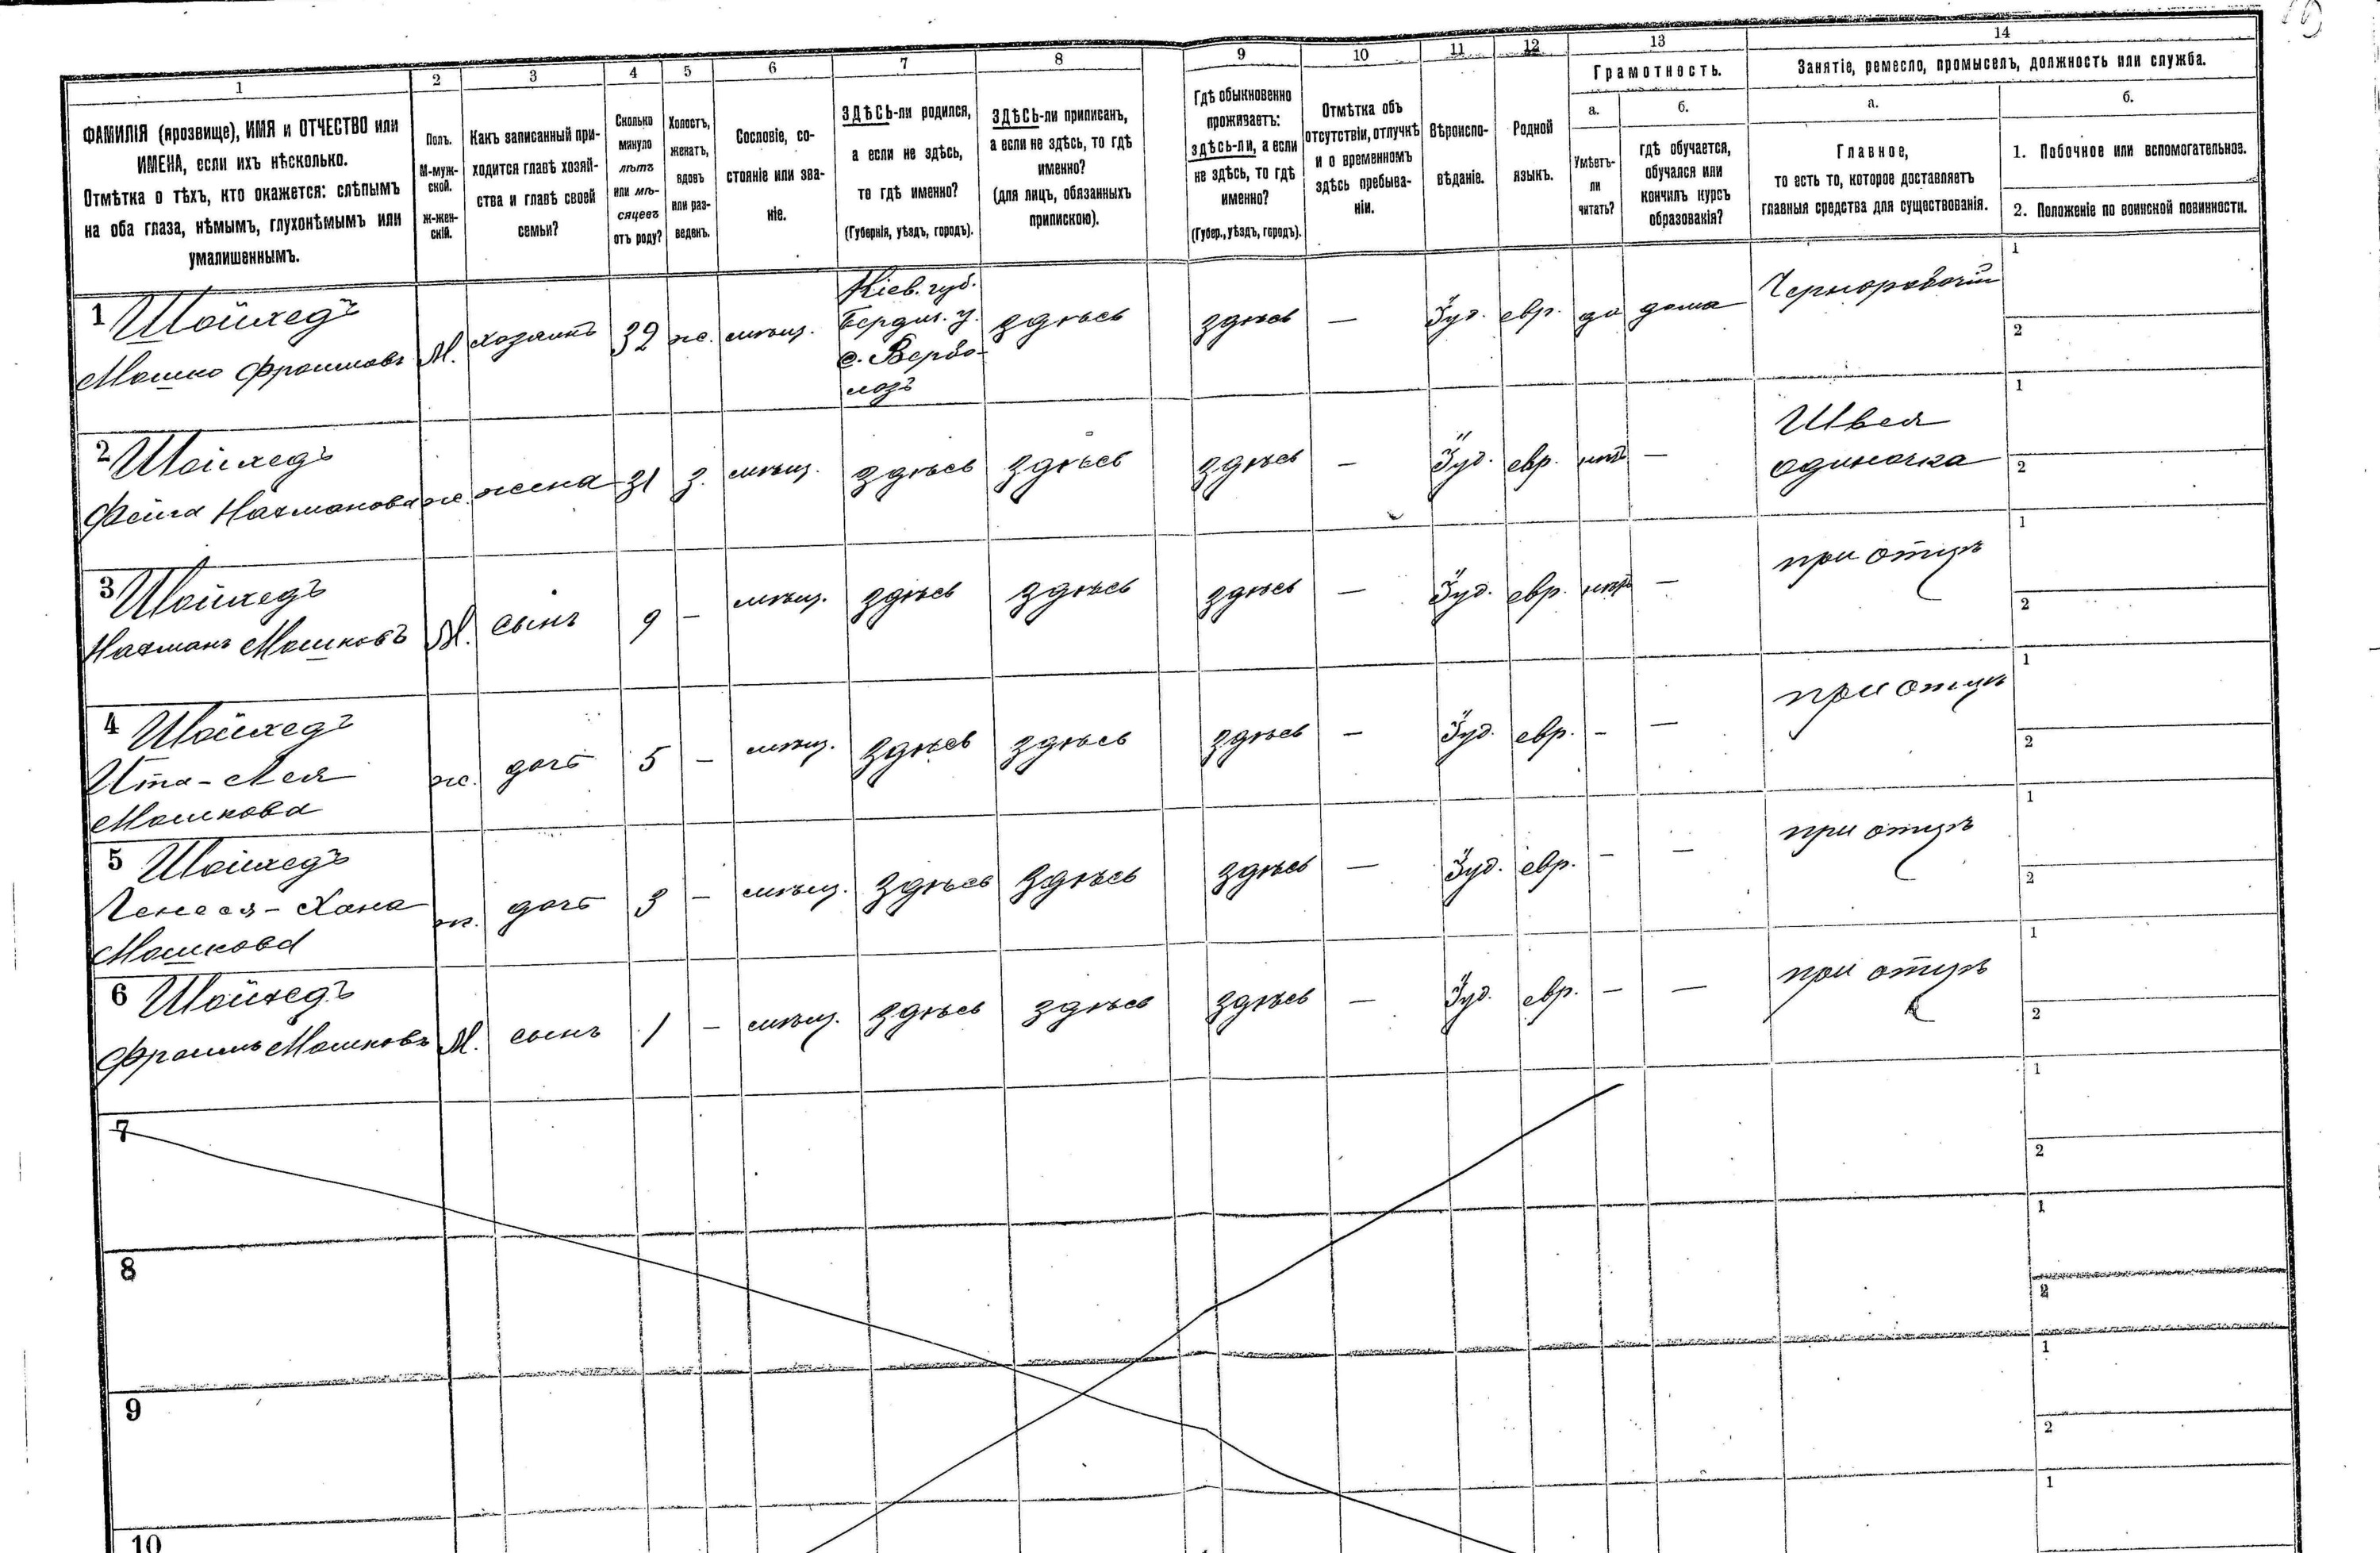 1 2 3 4 5 6 7 8 9 10 11 12 13 14
ФАМИЛІЯ (прозвище), ИМЯ и ОТЧЕСТВО или
ИМЕНА, если ихъ нѣсколько.
Отмѣтка о тѣхъ, кто окажется: слѣпымъ
на оба глаза, нѣмымъ, глухонѣмымъ или
умалишеннымъ.
Полъ.
М-муж-
ской.
ж-жен-
скій.
Какъ записанный при-
ходится главѣ хозяй-
ства и главѣ своей
семьи?
Сколько
минуло
лѣтъ
или мѣ-
сяцевъ
отъ роду?
Холостъ,
женатъ,
вдовъ
или раз-
веденъ.
Сословіе, со-
стояніе или зва-
ніе.
ЗДѢСЬ-ли родился,
а если не здѣсь,
то гдѣ именно?
(Губернія, уѣздъ, городъ).
ЗДѢСЬ-ли приписанъ,
а если не здѣсь, то гдѣ
именно?
(для лицъ, обязанныхъ
припискою).
Гдѣ обыкновенно
проживаетъ:
здѣсь-ли, а если
не здѣсь, то гдѣ
именно?
(Губер., уѣздъ, городъ).
Отмѣтка объ
отсутствіи, отлучкѣ
и о временномъ
здѣсь пребыва-
ніи.
Вѣроиспо-
вѣданіе.
Родной
языкъ.
Грамотность.
а.
Умѣетъ-
ли
читать?
б.
гдѣ обучается,
обучался или
кончилъ курсъ
образованія?
Занятіе, ремесло, промыселъ, должность или служба.
а.
Главное,
то есть то, которое доставляетъ
главныя средства для существованія.
б.
1. Побочное или вспомогательное.
2. Положеніе по воинской повинности.
1 Шойхедъ
Мошко Фроимовъ
М.
хозяинъ
32
ж.
мѣщ.
Кіев. губ.
Бердич. у.
с. Вербо-
лозъ
здѣсь
здѣсь
—
Іуд.
евр.
да
дома
Чернорабочій
1
2
2 Шойхедъ
Фейга Нахманова
ж.
жена
31
з.
мѣщ.
здѣсь
здѣсь
здѣсь
—
Іуд.
евр.
нѣтъ
—
Швея
одиночка
1
2
3 Шойхедъ
Нахманъ Мошковъ
М.
сынъ
9
—
мѣщ.
здѣсь
здѣсь
здѣсь
—
Іуд.
евр.
нѣтъ
—
при отцѣ
1
2
4 Шойхедъ
Ита-Лея
Мошкова
ж.
дочь
5
—
мѣщ.
здѣсь
здѣсь
здѣсь
—
Іуд.
евр.
—
—
при отцѣ
1
2
5 Шойхедъ
Генеся-Хана
Мошкова
ж.
дочь
3
—
мѣщ.
здѣсь
здѣсь
здѣсь
—
Іуд.
евр.
—
—
при отцѣ
1
2
6 Шойхедъ
Фроимъ Мошковъ
М.
сынъ
1
—
мѣщ.
здѣсь
здѣсь
здѣсь
—
Іуд.
евр.
—
—
при отцѣ
1
2
7
1
2
8
1
2
9
1
2
10
1